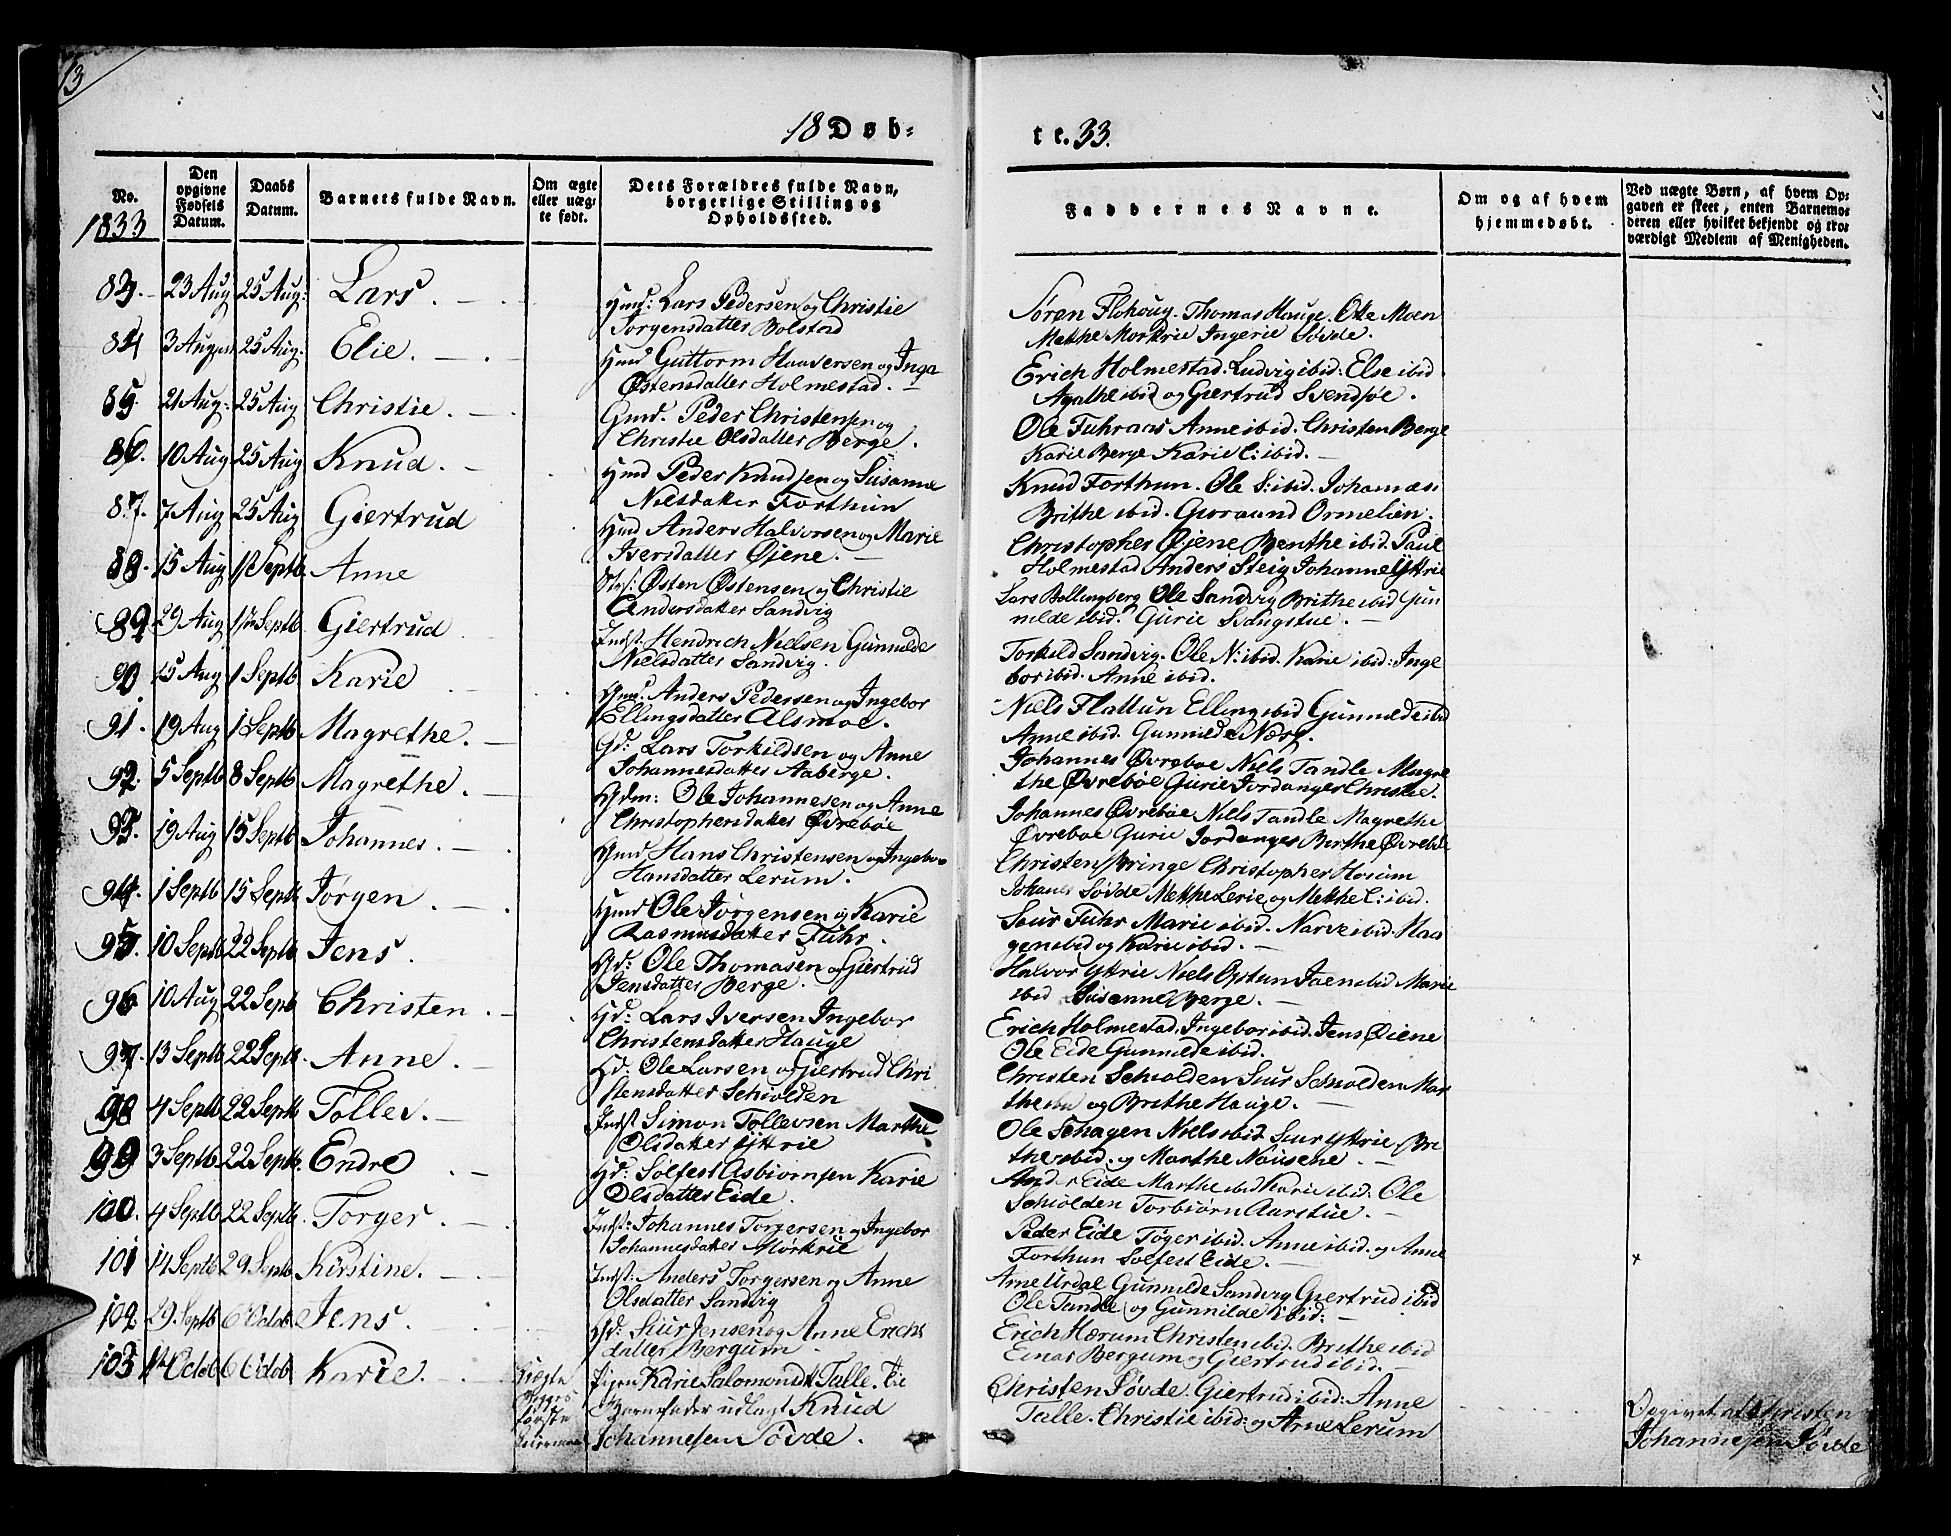 13
18 Døb-
te. 33.
No.
1833
Den opgivne Fødsels Datum.
Daabs Datum.
Barnets fulde Navn.
Om ægte eller uægte født.
Dets Forældres fulde Navn, borgerlige Stilling og Opholdssted.
Faddernes Navne.
Om og af hvem hjemmedøbt.
Ved uægte Børn, af hvem Opgaven er skeet, enten Barnemoderen eller hvilket bekjendt og troværdigt Medlem af Menigheden.
83. 23 Aug 25 Aug: Lars.
Hmd: Lars Pedersen og Christie
Jorgensdatter Bolstad
Søren Flohoug. Thomas Hauge. Ole Moen
Mekthe Morkrie Ingerie Søvde.
84 3 Aug 25 Aug. Elie.
Hmd Guttorm Haaversen og Inga
Østensdatter Holmestad.
Erich Holmestad. Ludvig ibid: Else ibid.
Agathe ibid og Giertrud Svendsøe.
85. 21 Aug: 25 Aug Christie.
Gmd. Peder Christensen og
Christie Olsdatter Berge.
Ole Fuhraas Anne ibid. Christen Berge
Karie Berge Karie C: ibid.
86. 10 Aug 25 Aug Knud.
Hmd Peder Knudsen og Susanne
Nielsdatter Forthun
Knud Forthun. Ole S: ibid. Johannes
Brithe ibid. Guraand Ormelien.
87. 7 Aug 25 Aug Giertrud
Hmd Anders Halvorsen og Marie
Iversdatter Øjene.
Christopher Øjene Benthe ibid. Paul
Holmestad Anders Steig Johanne Yttrie
88. 15 Aug 1 Septb Anne
Østen Østensen og Christie
Andersdatter Sandvig
Lars Bollingberg Ole Sandvig Brithe ibid Gun
nilde ibid. Gurie Svangstue.
89 29 Aug 1 Septb. Giertrud
Indst: Hendrich Nielsen Gunnilde
Nielsdatter Sandvig.
Torkild Sandvig. Ole N: ibid. Karie ibid: Inge
bor ibid. Anne ibid.
90 15 Aug 1 Septb Karie
Hmd: Anders Pedersen og Ingebor
Ellingsdatter Alsmoe.
Niels Flattun Elling ibid Gunnilde ibid
Anne ibid. Gunnilde Næss.
91. 19 Aug 1 Septb Magrethe.
Gd: Lars Torkildsen og Anne
Johannesdatter Aaberge.
Johannes Øvrebøe Niels Tandle Magre
the Øvrebøe Gurie Jordanger Christie.
92. 5 Septb 8 Septb Magrethe.
Gdm: Ole Johannesen og Anne
Christophersdatter Øvrebøe
Johannes Øvrebøe Niels Tandle Magrethe
Øvrebøe Gurie Jordanger Berthe Øvrebøe
93. 19 Aug 15 Septb Johannes.
Hmd Hans Christensen og Ingebor
Hansdatter Lerum.
Christen Bringe Christopher Høium
Johanes Søvde Mekthe Lerie og Mekthe C: ibid.
94. 1 Septb 15 Septb Jørgen.
Hmd Ole Jørgensen og Karie
Rasmusdatter Fuhr.
Siur Fuhr Marie ibid. Narve ibid. Haa
gen ibid og Karie ibid.
95. 10 Septb 22 Septb Jens.
Gd: Ole Thomasen og Giertrud
Jensdatter Berge.
Halvor Yttrie Niels Opstun Joen ibid Marie
ibid Susanne Berge.
96 10 Aug 22 Septb Christen.
Gd: Lars Iversen Ingebor
Christensdatter Hauge
Erich Holmestad. Ingebor ibid. Jens Øiene
Ole Eide Gunnilde ibid.
97. 13 Septb 22 Septb. Anne.
Gd: Ole Larsen og Giertrud Chri
stensdatter Schiolden
Christen Schiolden Siur Schiolden Mar
the ibid og Brithe Hauge.
98 4 Septb 22 Septb Tollev.
Indst Simon Tollevsen Marthe
Olsdatter Yttrie
Ole Schagen Niels ibid Siur Yttrie. Bri
the ibid. og Marthe Nousene.
99 3 Septb. 22 Septb. Endre
Gd: Solfest Asbiørnsen Karie
Olsdatter Eide.
Eide Marthe ibid Karie ibid: Ole
Schiolden Torbiørn Aarstue.
100. 4 Septb 22 Septb. Torger.
Indst: Johannes Torgersen og Ingebor
Johannesdatter Mørkrie
Peder Eide Tøger ibid. Anne ibid. og Anne
Forthun Solfest Eide.
101 14 Septb 29 Septb Kirstine.
Indst: Anders Torgersen og Anne
Olsdatter Sandvig
Arne Urdal Gunnilde Sandvig Giertrud ibid
Ole Tandle og Gunnilde ibid:
102 29 Septb 6 Octob. Jens.
Gd: Siur Jensen og Anne Erichs
datter Bergum.
Erich Hærum Christen ibid. Brithe ibid
Einar Bergum og Giertrud ibid.
103 1 Octob 6 Octob. Karie.
Uægte
første
Pigen Karie Salomonsdt Talle. Til
Barnefader udlagt Knud
Johannesen Søvde.
Christen Søvde. Giertrud ibid: Anne
Talle. Christie ibid: og Arne Lerum
Opgivet af Christen
Johannesen Søvde